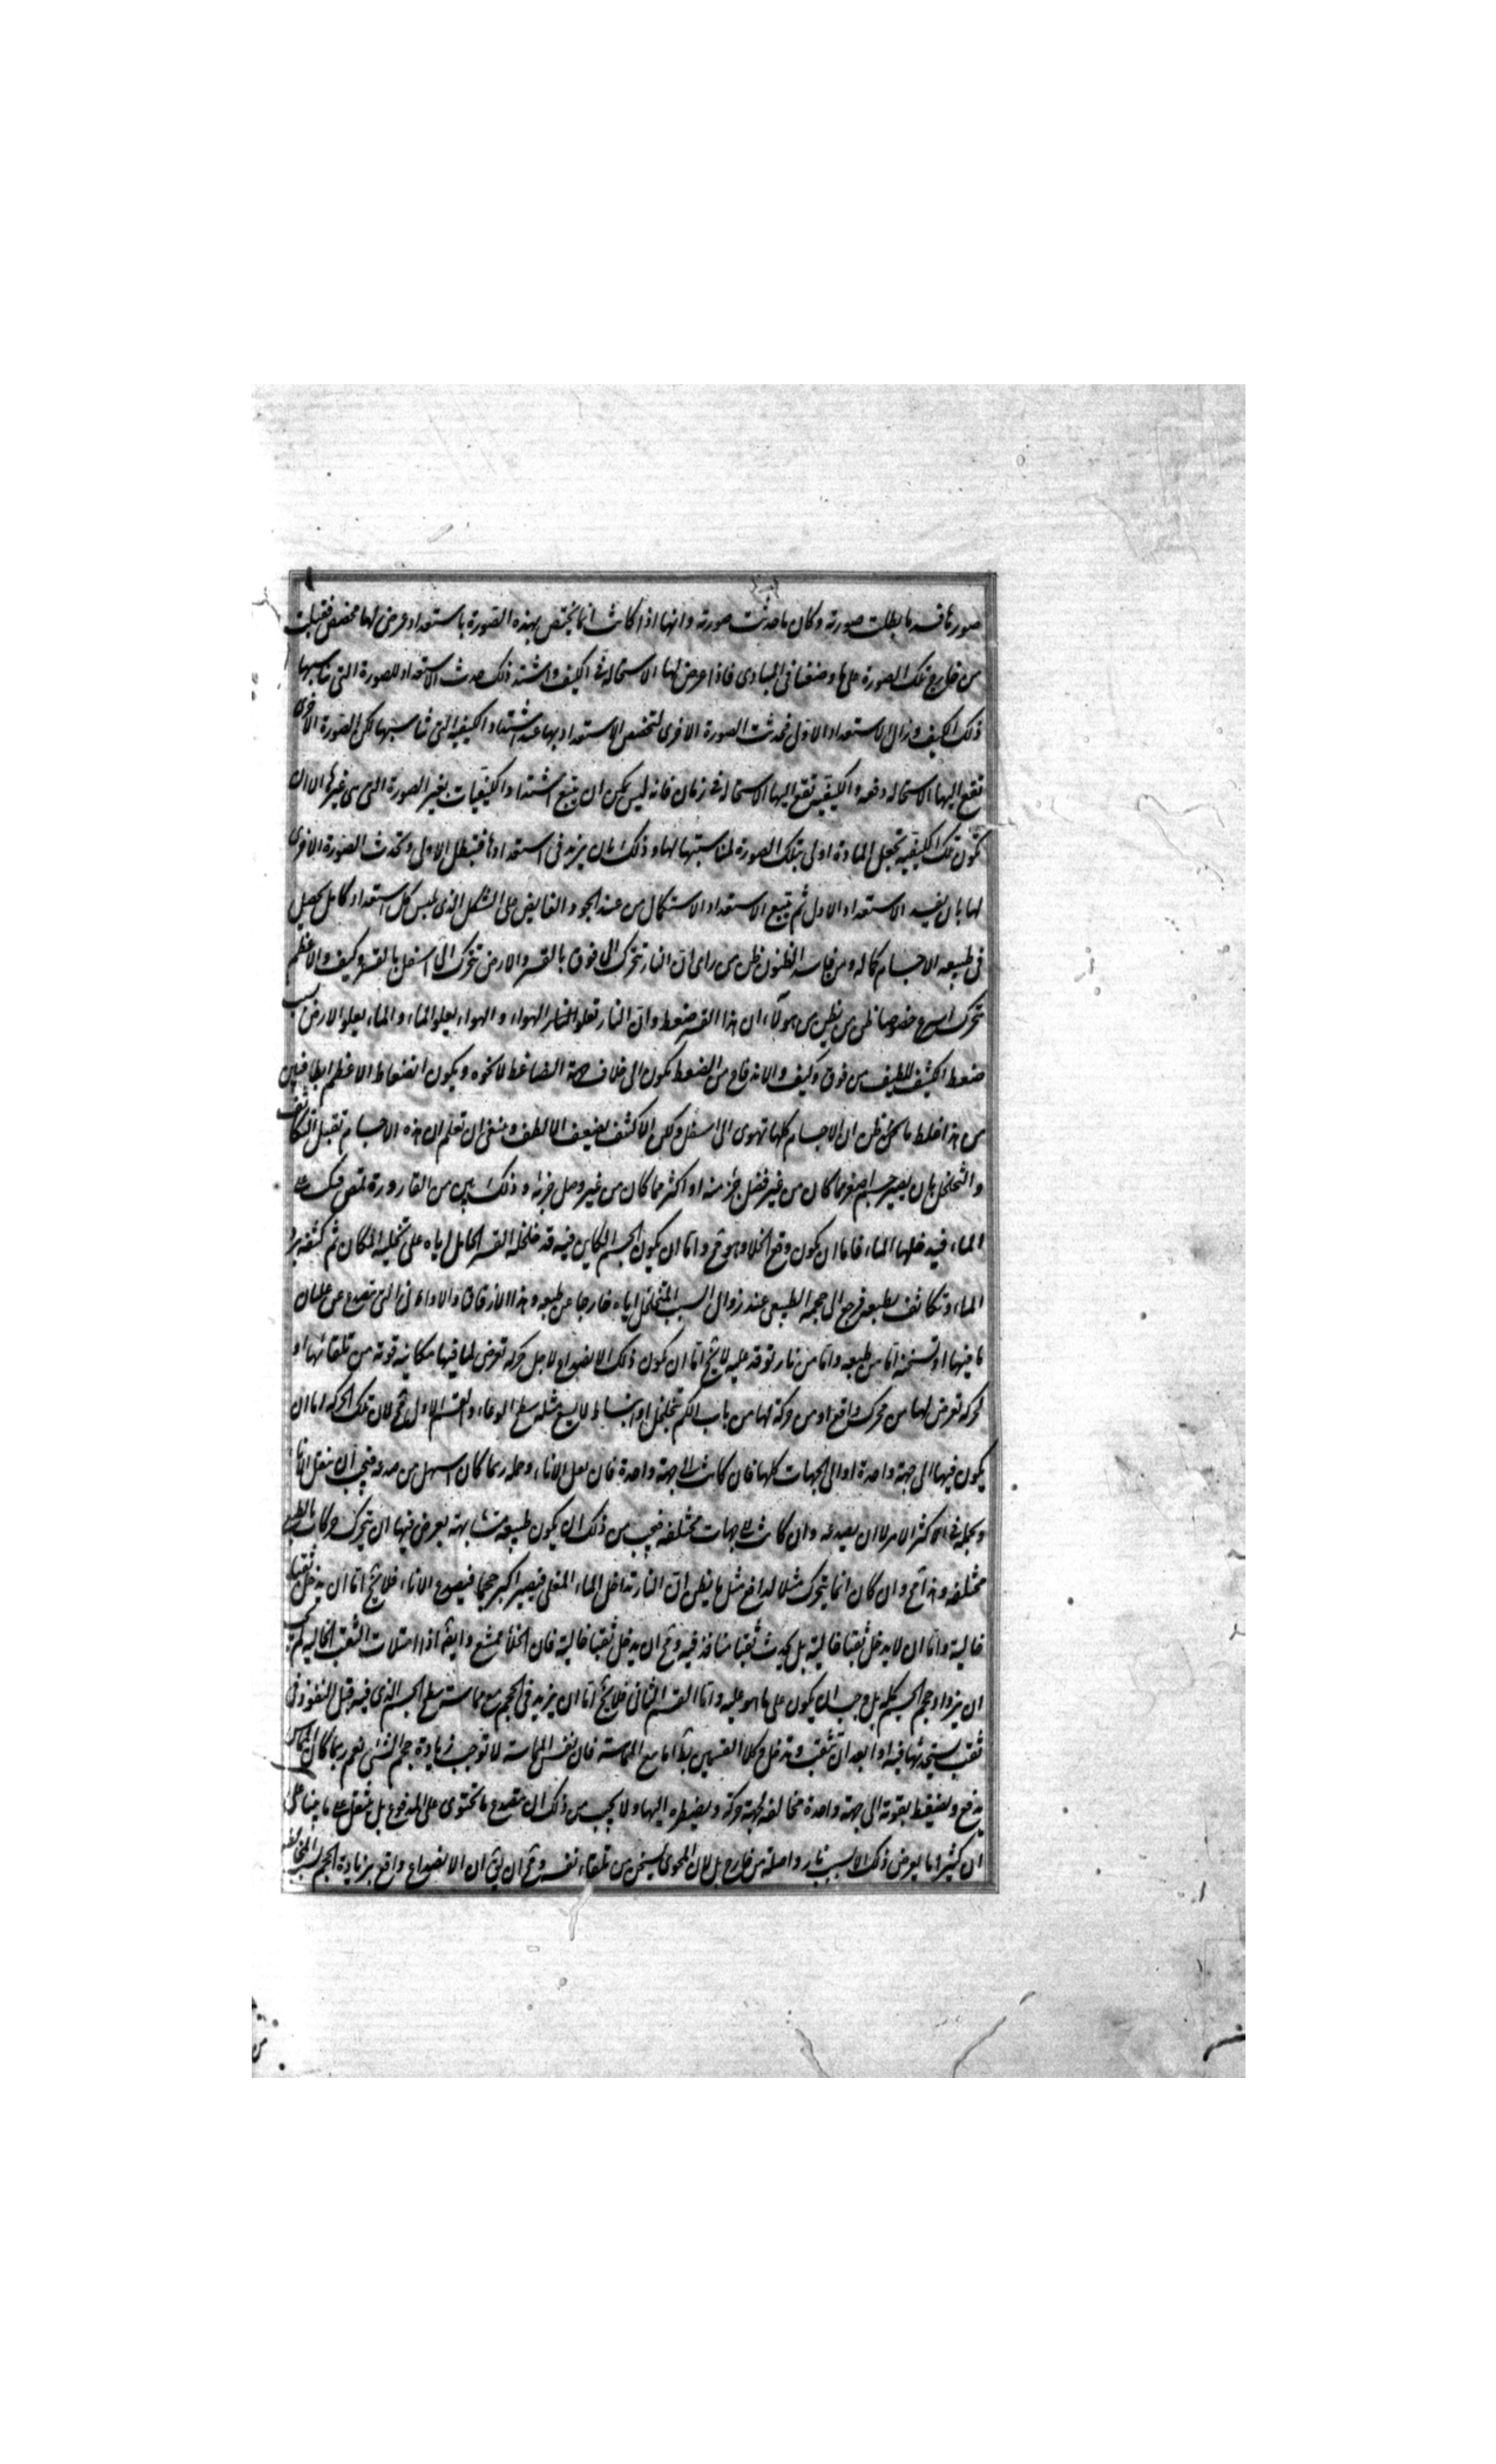 صورتا فسد ما بطلت صورته وكان ما حدثت صورته وانها اذا كانت انما يختص بهذه الصورة باستعداد عرض لها مخصص فقبلت
من خارج تلك الصورة على ما وصفنا فى المبادى فاذا عرض لها الاستحالة فى الكيف واشتد ذلك حدث الاستعداد للصورة التى يناسبها
ذلك الكيف وزال الاستعداد الاول فحدثت الصورة الاخرى لتخصص الاستعداد بها عند اشتداد الكيفية التى تناسبها لكن الصورة الاخرى
تقع اليها الاستحالة دفعه والكيفية تقع اليها الاستحالة فى زمان فانه ليس يمكن ان يتبع اشتداد الكيفيات بغير الصورة التى هى غيرها الا ان
تكون تلك الكيفية تجعل المادة اولى بتلك الصورة لمناسبتها لها وذلك بان يزيد فى استعدادها فتبطل الاولى وتحدث الصورة الاخرى
لها بان يفسد الاستعداد الاول ثم يتبع الاستعداد الاستكمال من عند الجود الفايض على الشكل الذى يلبس كل استعداد كامل يحصل
فى طبيعه الاجسام كماله ومن فاسد الظنون ظن من راى ان النار تتحرك الى فوق بالقسر والارض تتحرك الى اسفل بالقسر وكيف والاعظم
يتحرك اسرع خصوصا ظن من يظن من هولاء ان هذا القسر ضغط وان النار تعلو الهواء والهواء يعلو الماء والماء يعلو الارض بسبب
ضغط الكثيف اللطيف من فوق وكيف والاندفاع من الضغط يكون الى خلاف جهة الضاغط لا نحوه ويكون انضغاط الاعظم ابطا فتبين
من هذا غلط ما يحكى ظن ان الاجسام كلها تهوى الى اسفل ولكن الاكثف يضيعف الالطف وينبغى ان تعلم ان هذه الاجسام تقبل التكاثف
والتخلخل بان يصير جسم اصغر مما كان من غير فصل جزء منه او اكثر مما كان من غير وصل جزء به وذلك بين من القارورة تمص فتكب على
الماء فيدخلها الماء فاما ان يكون وقع الخلا وهو مح واما ان يكون الجسم الكاين فيه قد خلخله القسر الحامل اياه على تخلية المكان ثم كثفه برد
الماء وتكاثف بطبعه فرجع الى حجمه الطبيعى عند زوال السبب المتخلخل اياه خارجا عن طبعه وهذا الازقاق والاوانى التى تتصدع عن غليان
ما فيها او تسخنه اما من طبعه واما من نار توقد عليه لا يخ اما ان يكون ذلك الانصداع لاجل حركة تعرض لما فيها مكانيه قويه من تلقائها او
لحركة تعرض لها من محرك واقع او من حركة لها من باب الكم بتخلخل او انبساط لا يسع مثله سطح الوعاء والقسم الاول مح لان تلك الحركة اما ان
يكون فيها الى جهة واحدة او الى الجهات كلها فان كانت الى جهة واحدة فان نقل الاناء وحمله ربما كان اسهل من صدعه فيجب ان ينقل الاناء
ويحمله فى اكثر الامر لا ان يصدعه وان كانت الى جهات مختلفه فيجب من ذلك ان يكون طبيعه متشابهة يعرض فيها ان يتحرك حركات بالطبع
مختلفه وهذا مح وان كان انما يتحرك مثلا لدافع مثل ما يظن ان النار تداخل الماء المغلى فيصير اكبر حجما فيصدع الاناء فلا يخ اما ان يدخل ثقبا
خالية واما ان لا يدخل ثقبا خالية بل يحدث ثقبا منافذ فيه ومح ان يدخل ثقبا خالية فان الخلا ممتنع وايضا اذا امتلات الثقب الخالية لم يجب
ان يزداد حجم الجسم كله بل وجب ان يكون على ما هو عليه واما القسم الثانى فلا يخ اما ان يزيد فى الحجم مع مماسة سطح الجسم الذى فيه قبل النفوذ فى
ثقب يستحدثها فيه او بعد ان تثقب وتدخل وكلا القسمين بط اما مع المماسة فان نفس المماسة لا توجب زيادة حجم الشئ نعم ربما كان المماس
يدفع ويضغط بقوته الى جهة واحدة مخالفه لجهة حركته ويضطره اليها ولا يجب من ذلك ان يتصدع ما يحتوى على المدفوع بل ينتقل على ما بينا على
ان كثيرا ما يعرض ذلك لا لسبب نار واصلة من خارج بل لان المحوى يسخن من تلقاء نفسه ومح ان يق ان الانصداع واقع بزيادة الحجم لسبب المخالطه